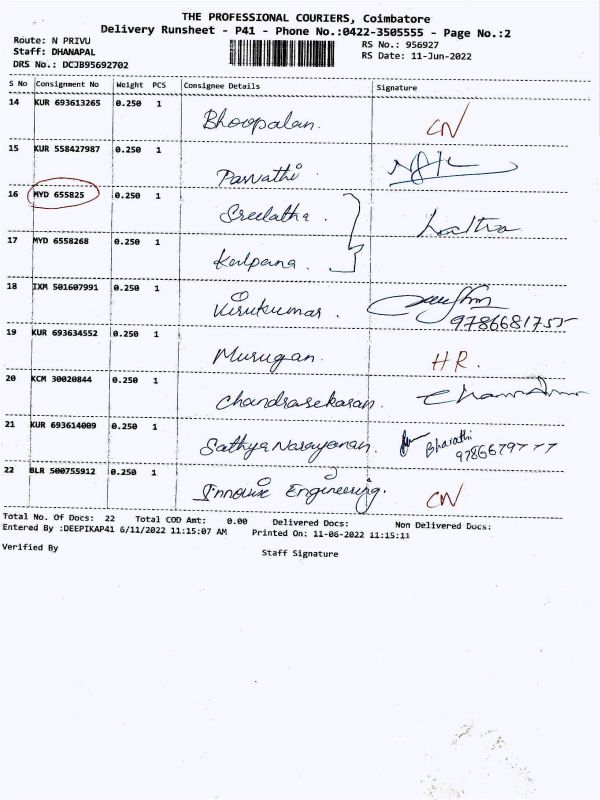 THE PROFESSIONAL COURIERS, Coimbatore
Delivery Runsheet - P41 - Phone No.:0422-3505555 - Page No.:2
Route: N PRIVU
RS No.: 956927
Staff: DHANAPAL
RS Date: 11-Jun-2022
DRS No.: DCJB95692702
S No Consignment No Weight PCS Consignee Details Signature
14 KUR 693613265 0.250 1 Bhoopalan. CN
15 KUR 558427987 0.250 1 Parvathi
16 MYD 655825 0.250 1 Sreelatha. Laltha
17 MYD 6558268 0.250 1 Kalpana.
18 IXM 501607991 0.250 1 Virukumar.
9786681755
19 KUR 693634552 0.250 1 Murugan. HR.
20 KCM 30020844 0.250 1 Chandrasekaran.
21 KUR 693614009 0.250 1 Sathya Narayanan. Bharathi
22 BLR 500755912 0.250 1 Engineering. CN
Total No. Of Docs: 22 Total COD Amt: 0.00 Delivered Docs: Non Delivered Docs:
Entered By :DEEPIKAP41 6/11/2022 11:15:07 AM Printed On: 11-06-2022 11:15:11
Verified By Staff Signature